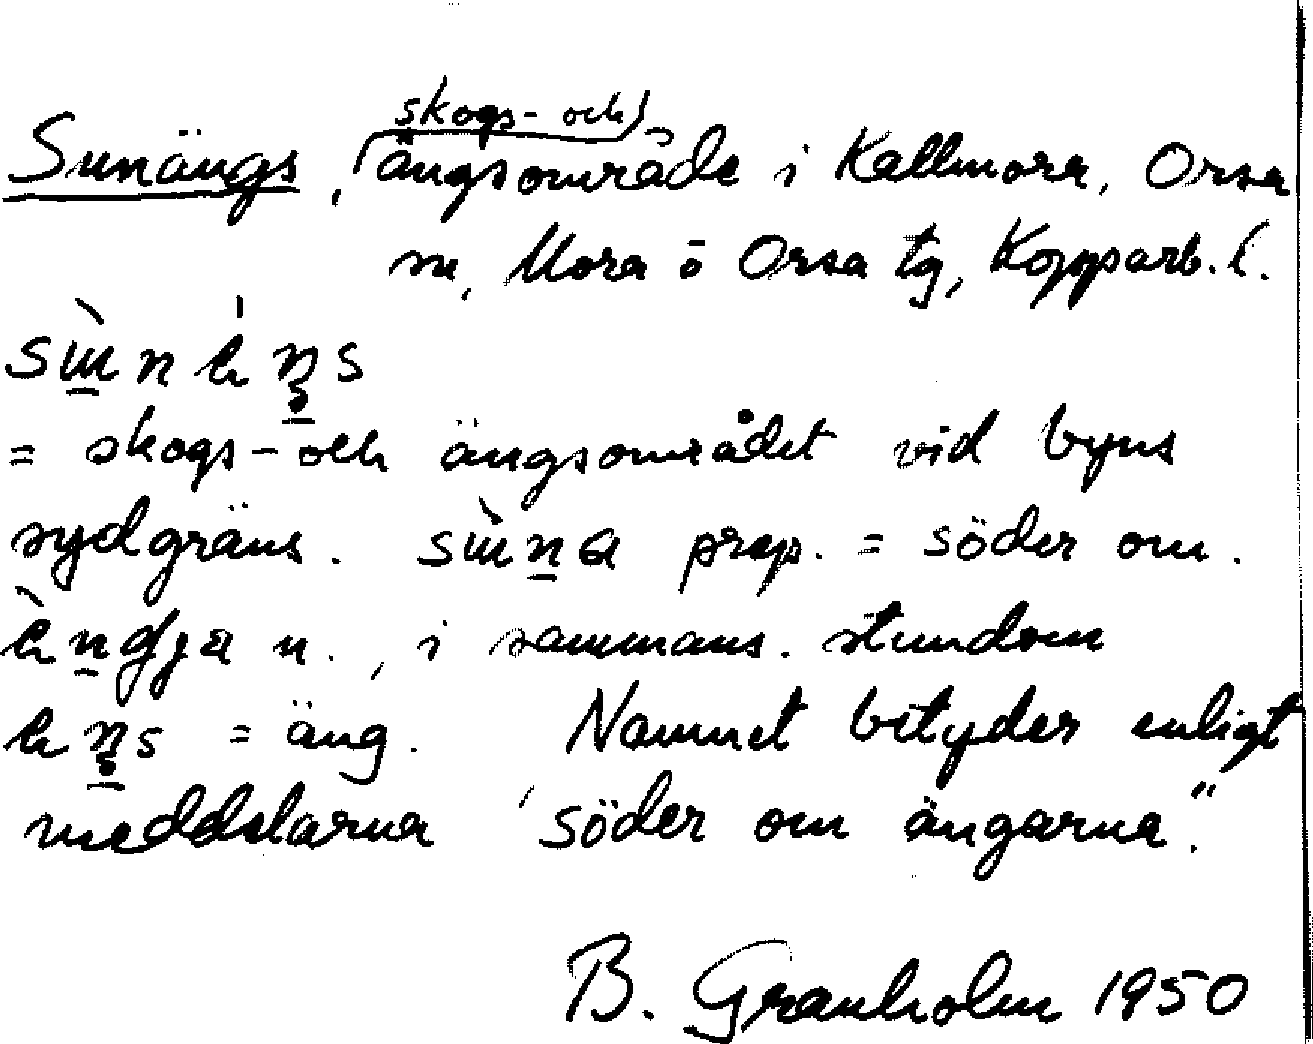 Sunängs, skogs- och ängsområde i Kallmora, Orsa
sn, Mora o Orsa tg, Kopparb. l.
= skogs- och ängsområdet vid byns
sydgräns. prep. = söder om.
n., i sammans. stundom
= äng. Namnet betyder enligt
meddelarna "söder om ängarna".
B. Granholm 1950